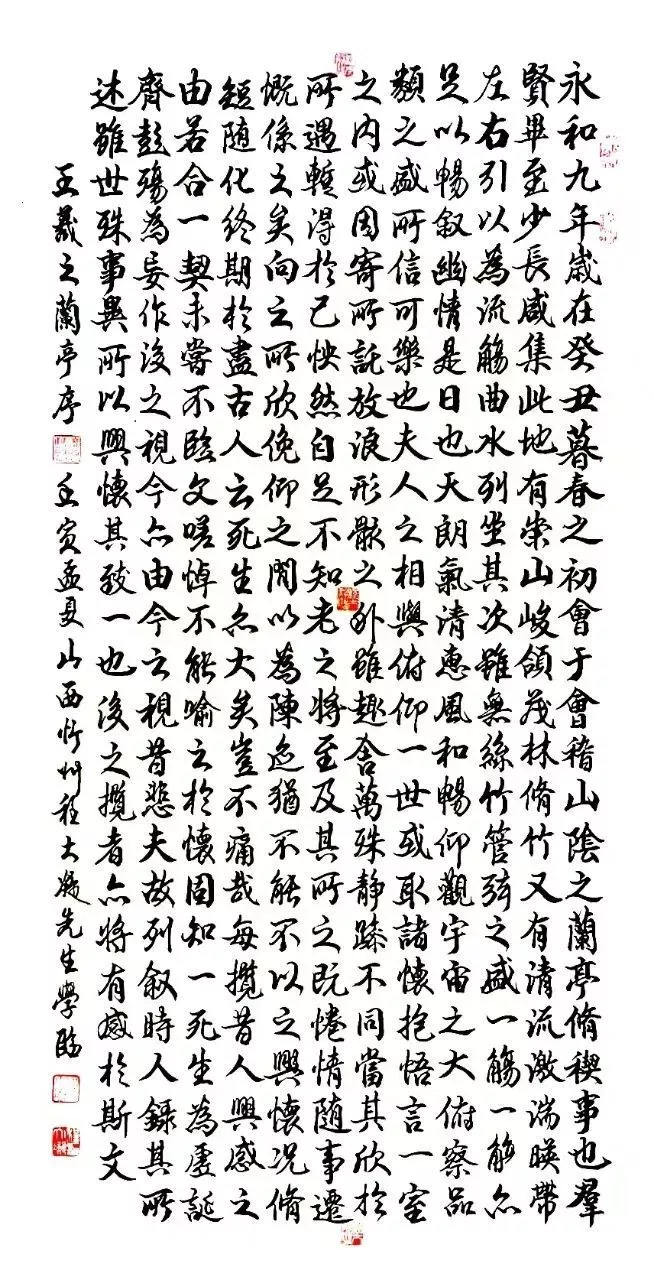 永和九年歲在癸丑暮春之初會于會稽山陰之蘭亭脩稧事也羣
賢畢至少長咸集此地有崇山峻領茂林脩竹又有清流激湍暎帶
左右引以為流觴曲水列坐其次雖無絲竹管弦之盛一觴一詠亦
足以暢叙幽情是日也天朗氣清惠風和暢仰觀宇宙之大俯察品
類之盛所信可樂也夫人之相與俯仰一世或取諸懷抱悟言一室
之内或因寄所託放浪形骸之外雖趣舍萬殊靜躁不同當其欣於
所遇暫得於己怏然自足不知老之將至及其所之既惓情随事遷
慨係之矣向之所欣俛仰之閒以為陳迹猶不能不以之興懷況脩
短随化終期於盡古人云死生亦大矣豈不痛哉每攬昔人興感之
由若合一契未嘗不臨文嗟悼不能喻之於懷固知一死生為虛誕
齊彭殤為妄作後之視今亦由今之視昔悲夫故列叙時人錄其所
述雖世殊事異所以興懷其致一也後之攬者亦將有感於斯文
王羲之蘭亭序 壬寅孟夏山西忻州程大凝先生學臨